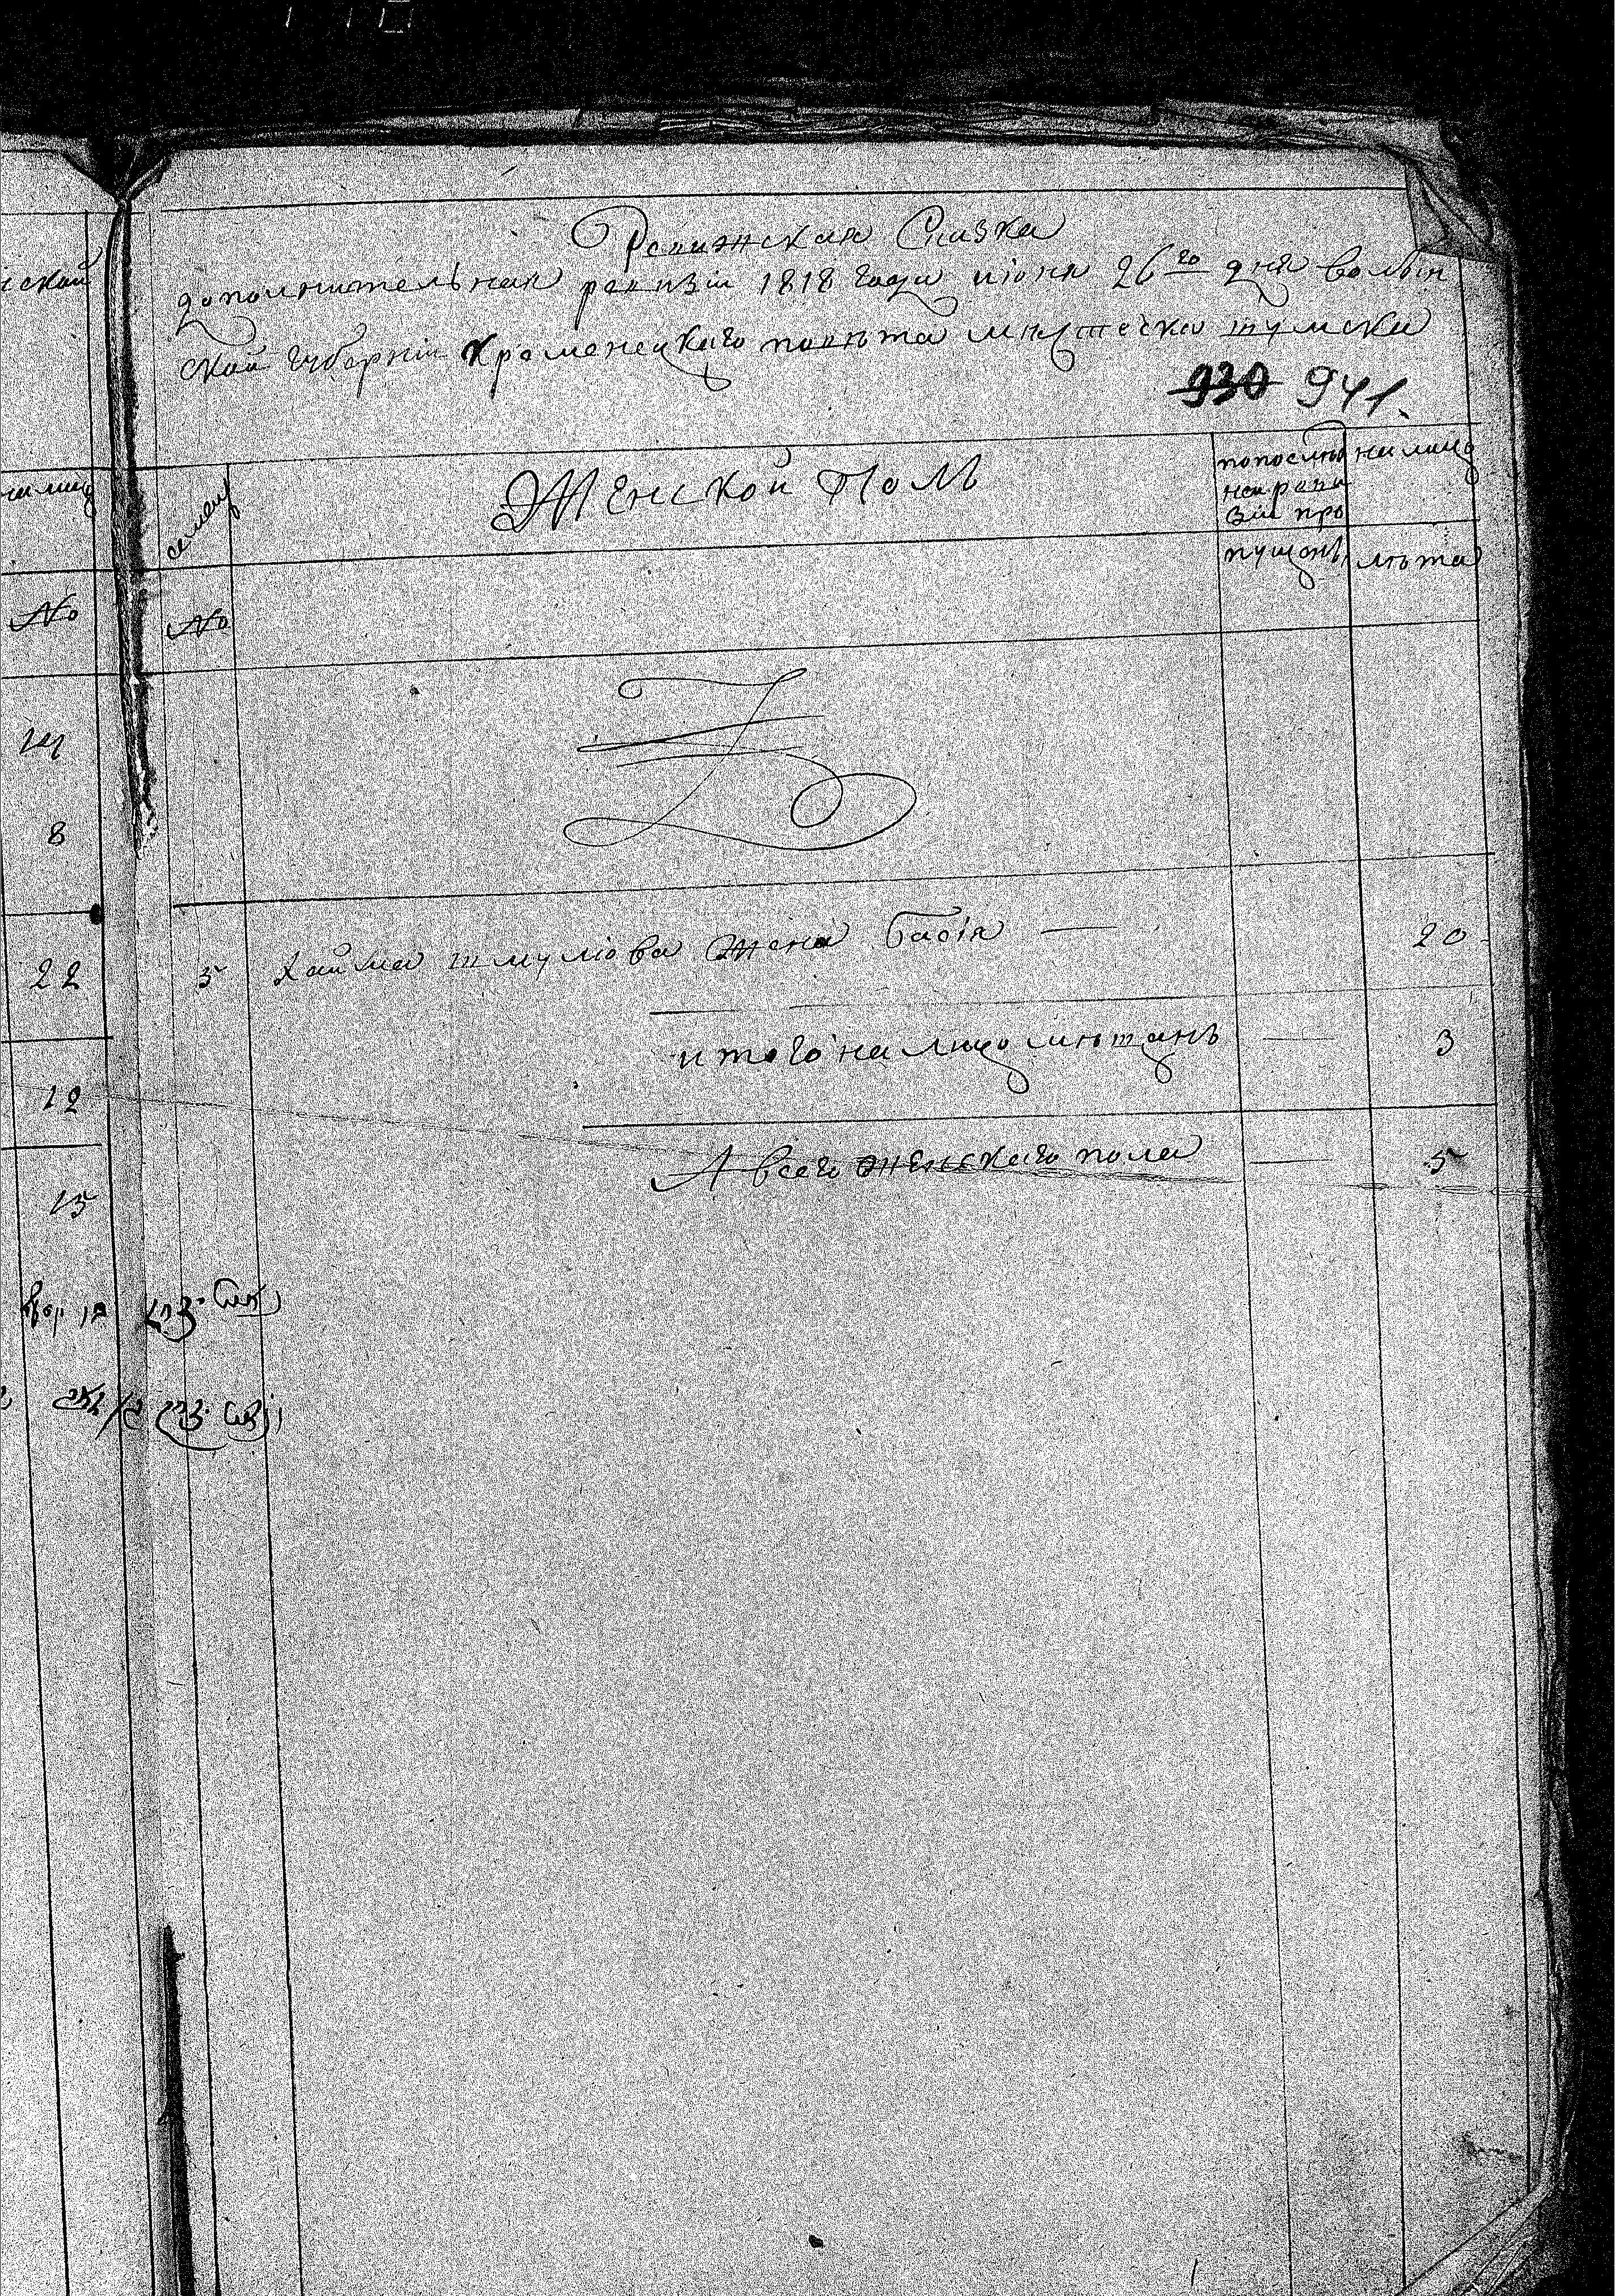 Ревижская Сказка
дополнительная ревизіи 1818 года июня 26го дня волын
ской губерніи Кременецкаго повѣта мѣстечка шумска
930 941.
ской
на лицо
семей
Женской Полъ
по послѣд
ней реви
зіи про
пущенъ
на лицо
лѣта
№
№
14
8
22
5 Хаима шмулюва жена Бася — 20
итого на лицо мѣщанъ — 3
12
А всего женскаго пола — 5
15